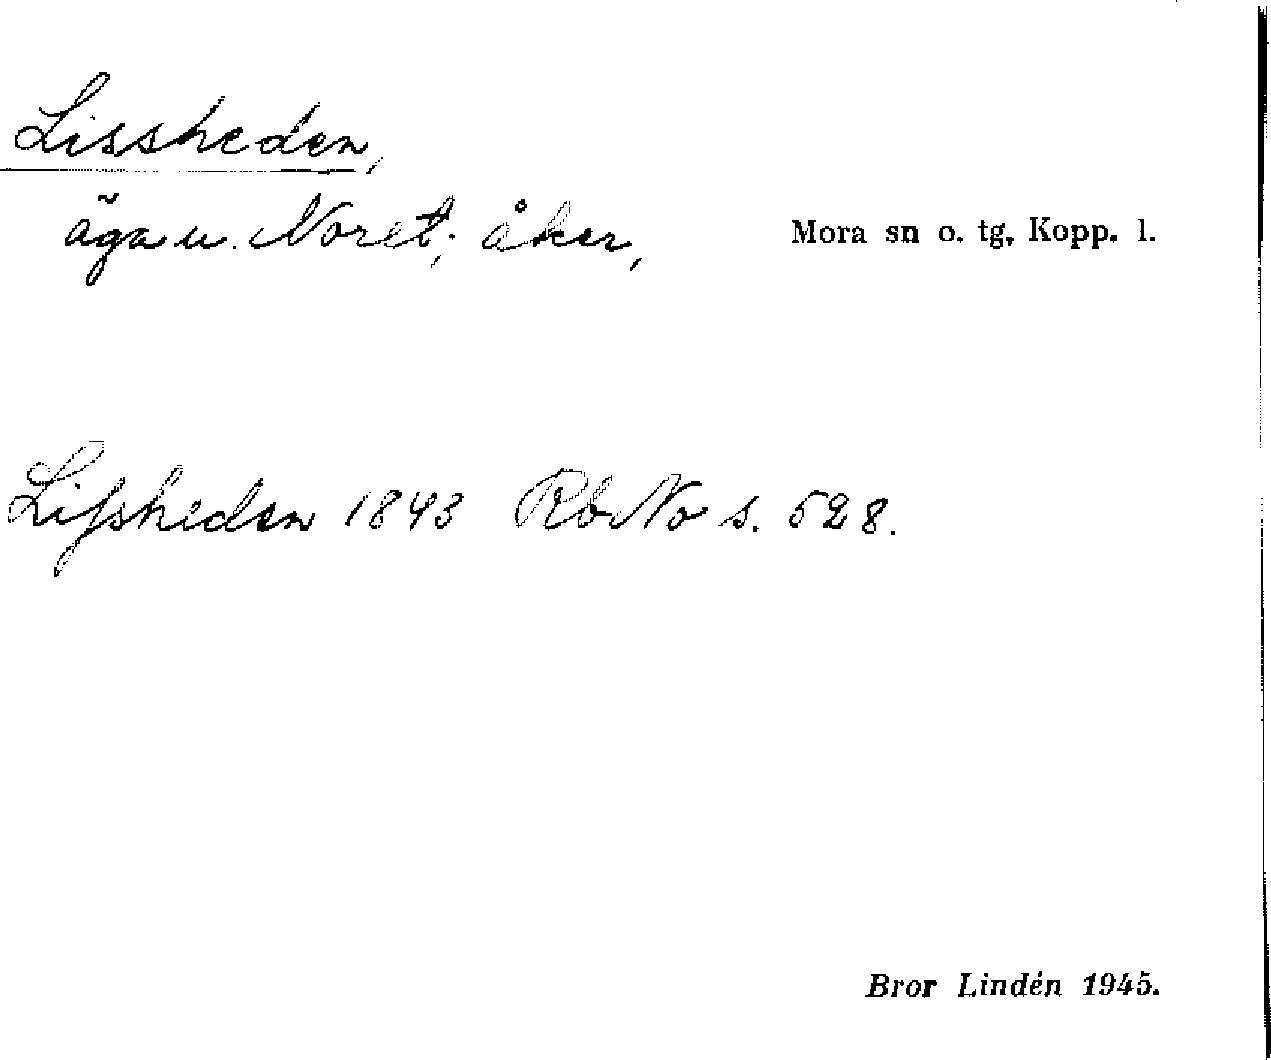 Lissheden,
äga u. Noret; åker,
Mora sn o. tg, Kopp. l.
Lissheden 1843 RbNo s. 528.
Bror Lindén 1945.